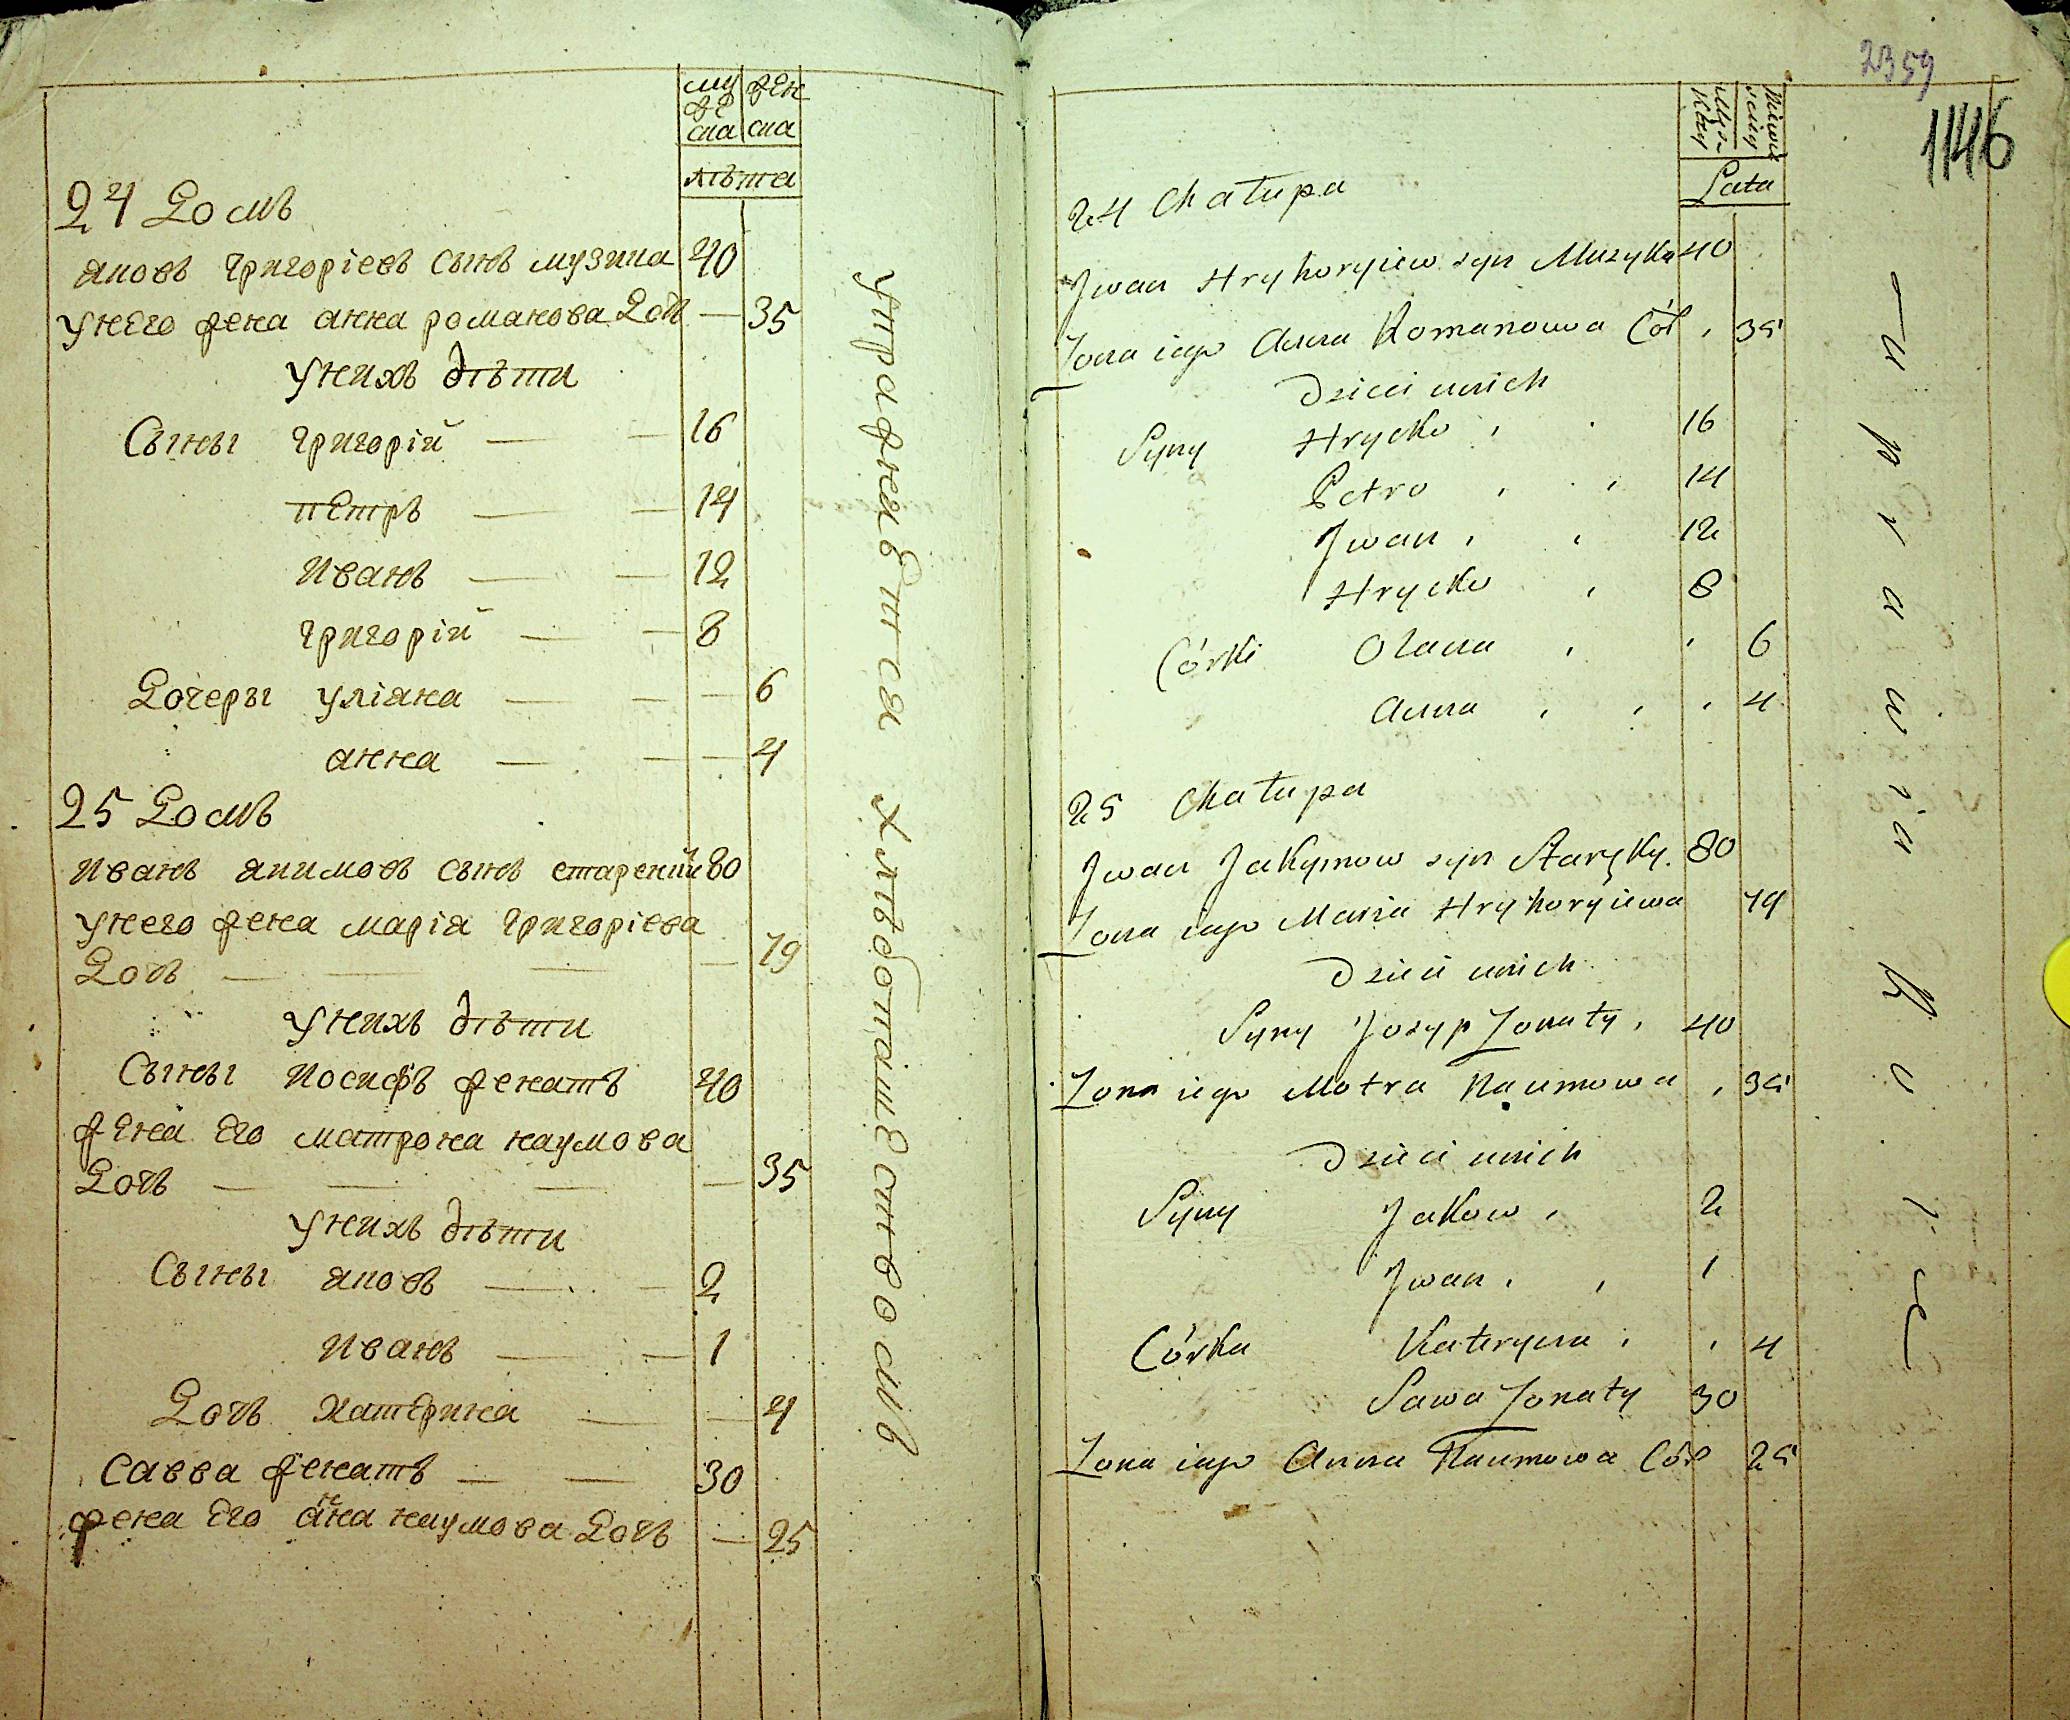 му
же
ска
жен
ска
лѣта
24 Домъ
яковъ григоріевъ сынъ музика 40
унего жена анна романова Доч — 35
унихъ дѣти
Сыны григорій — — 16
петръ — — 14
иванъ — — 12
григорій — — 8
Дочеры уліяна — — — 6
анна — — — 4
25 Домъ
иванъ якимовъ сынъ старекій 80
унего жена марія григоріева
Дочь — — — — 79
унихъ дѣти
Сыны иосифъ женатъ 40
жена его матрона наумова
Дочь — — — — 35
унихъ дѣти
Сыны яковъ — — 2
иванъ — — 1
Дочь катерина — — 4
Савва женатъ — — 30
жена его анна наумова Дочь — 25
упражнѣются хлѣбопашествомъ
2359
1146
Lata
24 Chałupa
Jwan Hryhoryiew syn Muzyka 40
Zona iego Anna Romanowa Cór 35
Dzieci unich
Syny Hrycko 16
Petro 14
Jwan 12
Hrycko 8
Córki Olana 6
Anna 4
25 Chałupa
Jwan Jakymow syn Staryky. 80
Zona iego Maria Hryhoryiewa 79
Dzieci unich
Syny Jozyp Zonaty 40
Zona iego Motra Naumowa 35
Dzieci unich
Syny Jakow 2
Jwan 1
Córka Kateryna 4
Sawa Zonaty 30
Zona iego Anna Naumowa Cór 25